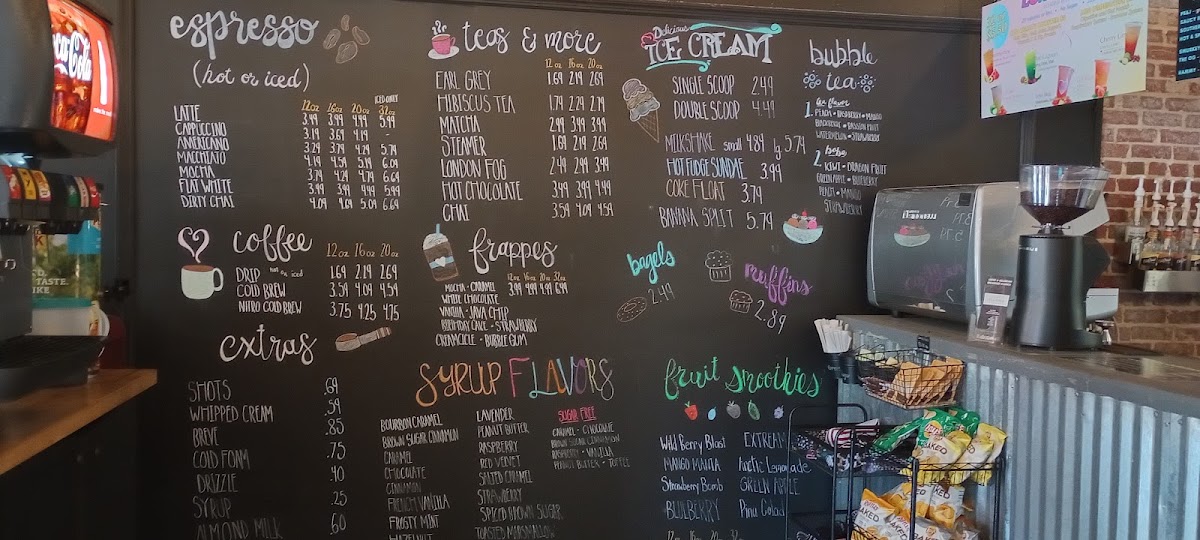 Coca-Cola
espresso
(hot or iced)
ICED ONLY
12oz 16oz 20oz 32oz
LATTE 3.49 3.99 4.49 5.49
CAPPUCCINO 3.19 3.69 4.19 -
AMERICANO 3.24 3.74 4.24 5.74
MACCHIATO 4.19 4.54 5.19 6.09
MOCHA 3.74 4.24 4.74 6.64
FLAT WHITE 3.49 3.99 4.49 5.99
DIRTY CHAI 4.09 4.64 5.04 6.64
coffee
12 oz 16 oz 20 oz
DRIP hot or iced 1.69 2.19 2.69
COLD BREW 3.54 4.04 4.54
NITRO COLD BREW 3.75 4.25 4.75
extras
SHOTS .69
WHIPPED CREAM .59
BREVE .85
COLD FOAM .75
DRIZZLE .40
SYRUP .25
ALMOND MILK .60
teas & more
12 oz 16 oz 20 oz
EARL GREY 1.69 2.19 2.69
HIBISCUS TEA 1.79 2.29 2.79
MATCHA 2.49 3.49 3.99
STEAMER 1.69 2.19 2.69
LONDON FOG 2.49 2.99 3.49
HOT CHOCOLATE 3.49 3.99 4.49
CHAI 3.54 4.04 4.54
frappes
12 oz 16 oz 20 oz 32 oz
MOCHA - CARAMEL 3.99 4.49 4.99 6.99
WHITE CHOCOLATE
VANILLA - JAVA CHIP
BIRTHDAY CAKE - STRAWBERRY
CREAMCICLE - BUBBLE GUM
SYRUP FLAVORS
BOURBON CARAMEL
BROWN SUGAR CINNAMON
CARAMEL
CHOCOLATE
CINNAMON
FRENCH VANILLA
FROSTY MINT
HAZELNUT
LAVENDER
PEANUT BUTTER
RASPBERRY
RED VELVET
SALTED CARAMEL
STRAWBERRY
SPICED BROWN SUGAR
TOASTED MARSHMALLOW
SUGAR FREE
CARAMEL - CHOCOLATE
BROWN SUGAR CINNAMON
RASPBERRY - VANILLA
PEANUT BUTTER - TOFFEE
Delicious
ICE CREAM
SINGLE SCOOP 2.49
DOUBLE SCOOP 4.49
MILKSHAKE small 4.89 lg 5.74
HOT FUDGE SUNDAE 3.99
COKE FLOAT 3.79
BANANA SPLIT 5.79
bagels
2.49
muffins
2.89
fruit smoothies
Wild Berry Blast
MANGO
Strawberry Bomb
BLUEBERRY
EXTREAM
Arctic Lemonade
GREEN APPLE
Pina Colad
bubble
tea
1. tea flavor
PEACH - RASPBERRY - MANGO
BLACKBERRY - PASSION FRUIT
WATERMELON - STRAWBERRY
2. boba
KIWI - DRAGON FRUIT
GREEN APPLE - BLUEBERRY
PEACH - MANGO
STRAWBERRY
BAKED
BAKED